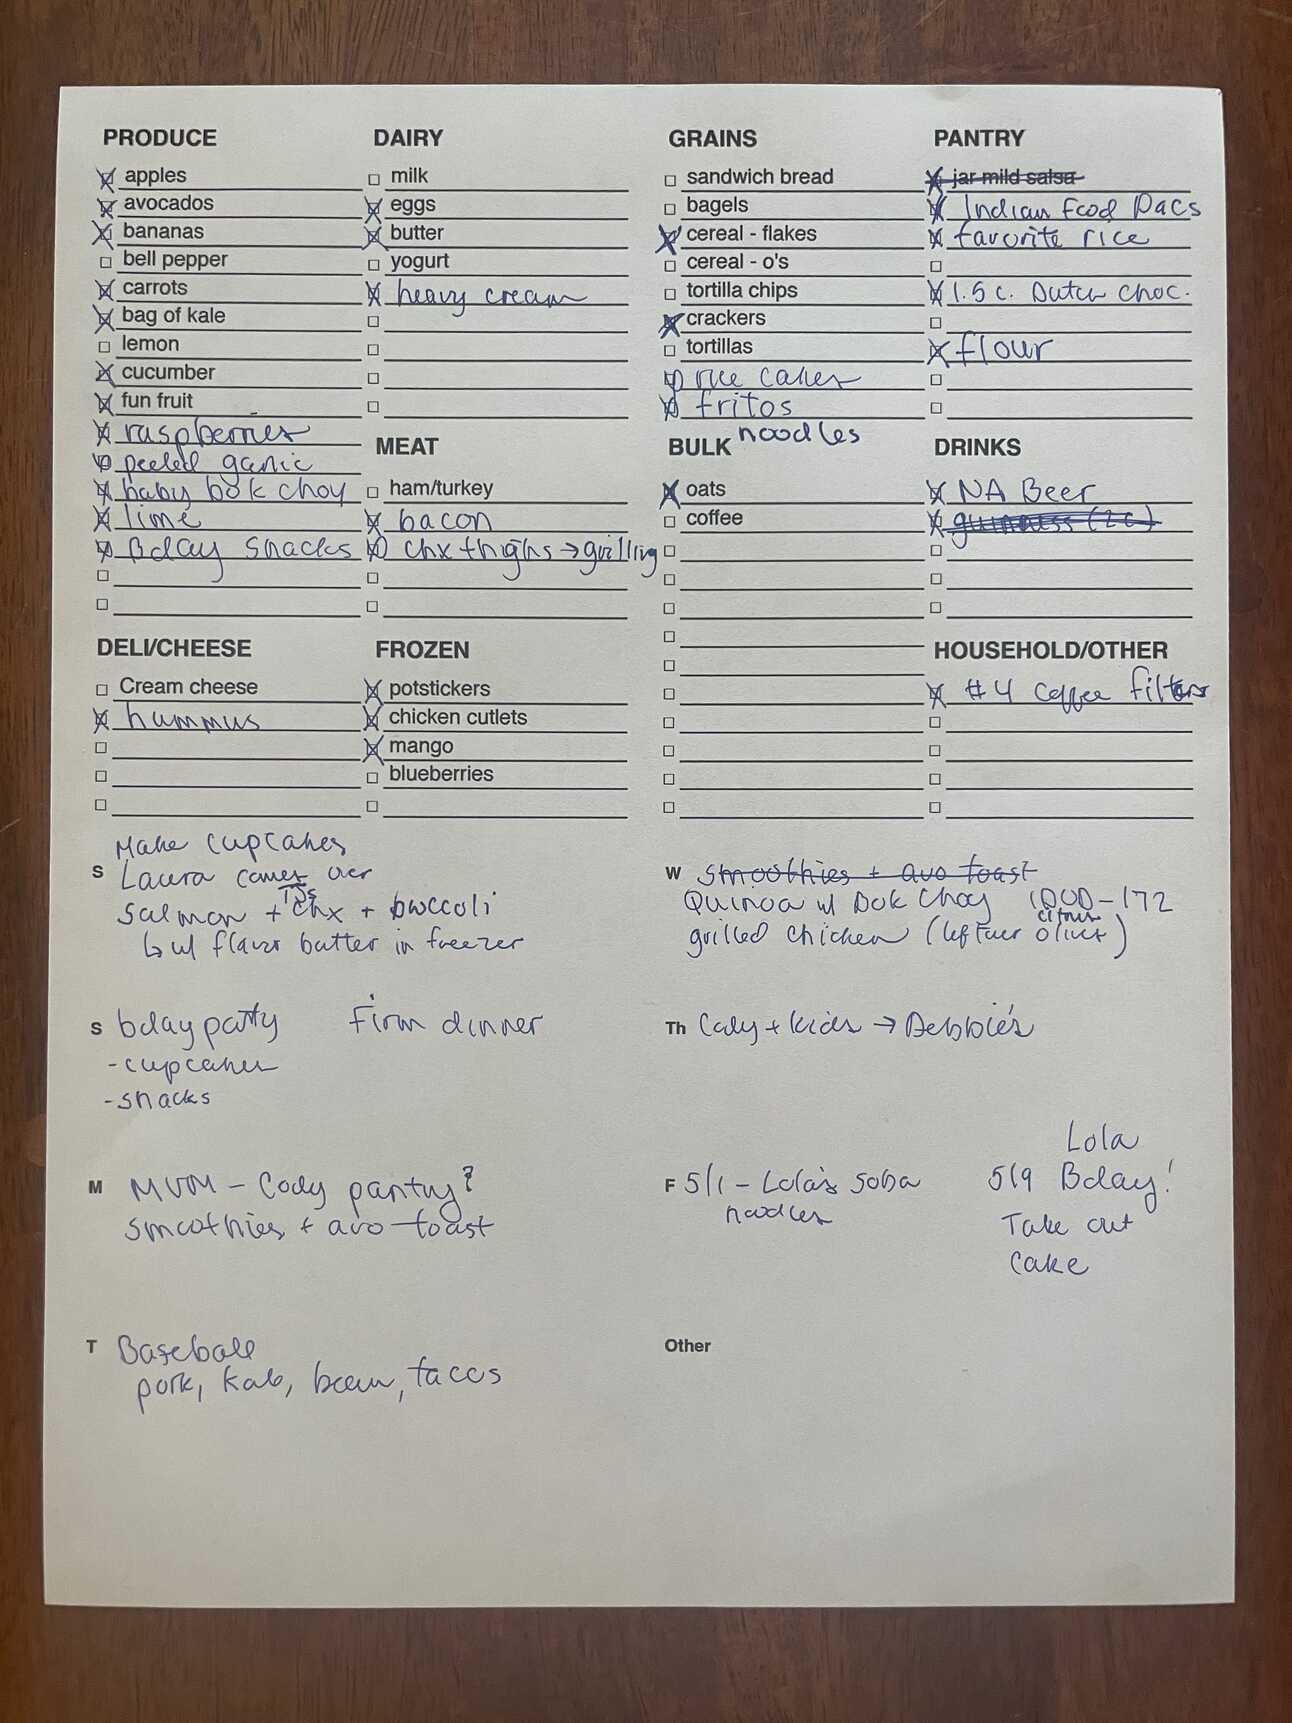 PRODUCE
apples
avocados
bananas
bell pepper
carrots
bag of kale
lemon
cucumber
fun fruit
raspberries
peeled garlic
baby bok choy
lime
Bday snacks
DAIRY
milk
eggs
butter
yogurt
heavy cream
MEAT
ham/turkey
bacon
chx thighs → grilling
GRAINS
sandwich bread
bagels
cereal - flakes
cereal - o's
tortilla chips
crackers
tortillas
rice cakes
fritos
noodles
BULK
oats
coffee
PANTRY
jar mild salsa
Indian Food Pacs
favorite rice
1.5 c. Dutch choc.
flour
DRINKS
NA Beer
guinness (2c)
DELI/CHEESE
Cream cheese
hummus
FROZEN
potstickers
chicken cutlets
mango
blueberries
HOUSEHOLD/OTHER
#4 coffee filters
Make cupcakes
S Laura comes over
TJs
salmon + chx + broccoli
↳ w/ flavor butter in freezer
S bday party Firm dinner
- cupcakes
- snacks
M MVM - Cody pantry?
smoothies + avo toast
T Baseball
pork, kab, bean, tacos
W smoothies + avo toast
Quinoa w/ Bok Choy 1000-172
citrus
grilled chicken (leftover olives)
Th Cody + kids → Debbie's
F 5/1 - Lola's soba
noodles
Lola
5/9 Bday!
Take out
cake
Other